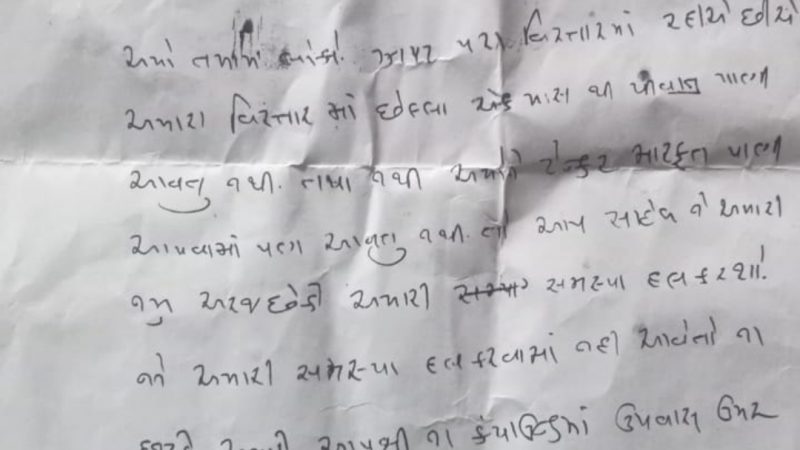 અમો તમામ લોકો ઝાંપર પરા વિસ્તારમાં રહીયે છીયે
અમારા વિસ્તાર માં છેલ્લા એક માસ થી પીવાનુ પાણી
આવતુ નથી. તથા નથી અમોને ટેન્કર મારફત પાણી
આપવામાં પણ આવતુ નથી. તો આપ સાહેબ ને અમારી
નમ્ર અરજ છેકે અમારી સમસ્યા હલ કરશો.
જો અમારી સમસ્યા હલ કરવામાં નહી આવેતો ના
છુટકે અમારે આપશ્રી ના ઉપવાસ ઉપર